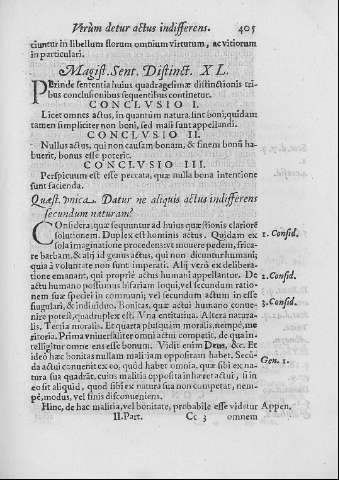 Verùm detur actus indifferens. 405
ciuntur in libellum florum omnium virtutum, ac vitiorum
in particulari.
Magist. Sent. Distinct. XL.
PErinde sententia huius quadragesimæ distinctionis tri-
bus conclusionibus sequentibus continetur.
CONCLVSIO I.
Licet omnes actus, in quantum natura sint boni; quidam
tamen simpliciter non boni, sed mali sunt appellandi.
CONCLVSIO II.
Nullus actus, qui non causam bonam, & finem bonũ ha-
buerit, bonus esse poterit.
CONCLVSIO III.
Perspicuum est esse peccata, quæ nulla bona intentione
sunt facienda.
Quæst. vnica. Datur ne aliquis actus indifferens
secundum naturam?
COnsidera, quæ sequuntur ad huius quæstionis clariorẽ
solutionem. Duplex est hominis actus. Quidam ex 1. Consid.
sola imaginatione procedens: vt mouere pedem, frica-
re barbam, & alij id genus actus, qui non dicuntur humani;
quia à voluntate non sunt imperati. Alij verò ex delibera-
tione emanant, qui propriè actus humani appellantur. De 2. Consid.
actu humano possumus bifariam loqui, vel secundum ratio-
nem suæ speciei in communi, vel secundum actum in esse
singulari, & indiuiduo. Bonitas, quæ actui humano conue- 3. Consid.
nire potest, quadruplex est. Vna entitatiua. Altera natura-
lis. Tertia moralis. Et quarta plusquam moralis, nempè, me
ritoria. Prima vniuersaliter omni actui competit, de qua in-
telligitur omne ens esse bonum. Vidit enim Deus, &c. Et
ideò hæc bonitas nullam malitiam oppositam habet. Secũ- Gen. 1.
da actui conuenit ex eo, quòd habet omnia, quæ sibi ex na-
tura sua quadrãt, cuius malitia opposita inhæret actui, si in
eo sit aliquid, quod sibi ex natura sua non competat, nem-
pè, modus, vel finis disconueniens.
Hinc, de hac malitia, vel bonitate, probabile esse videtur Appen.
II. Part. Cc 3 omnem